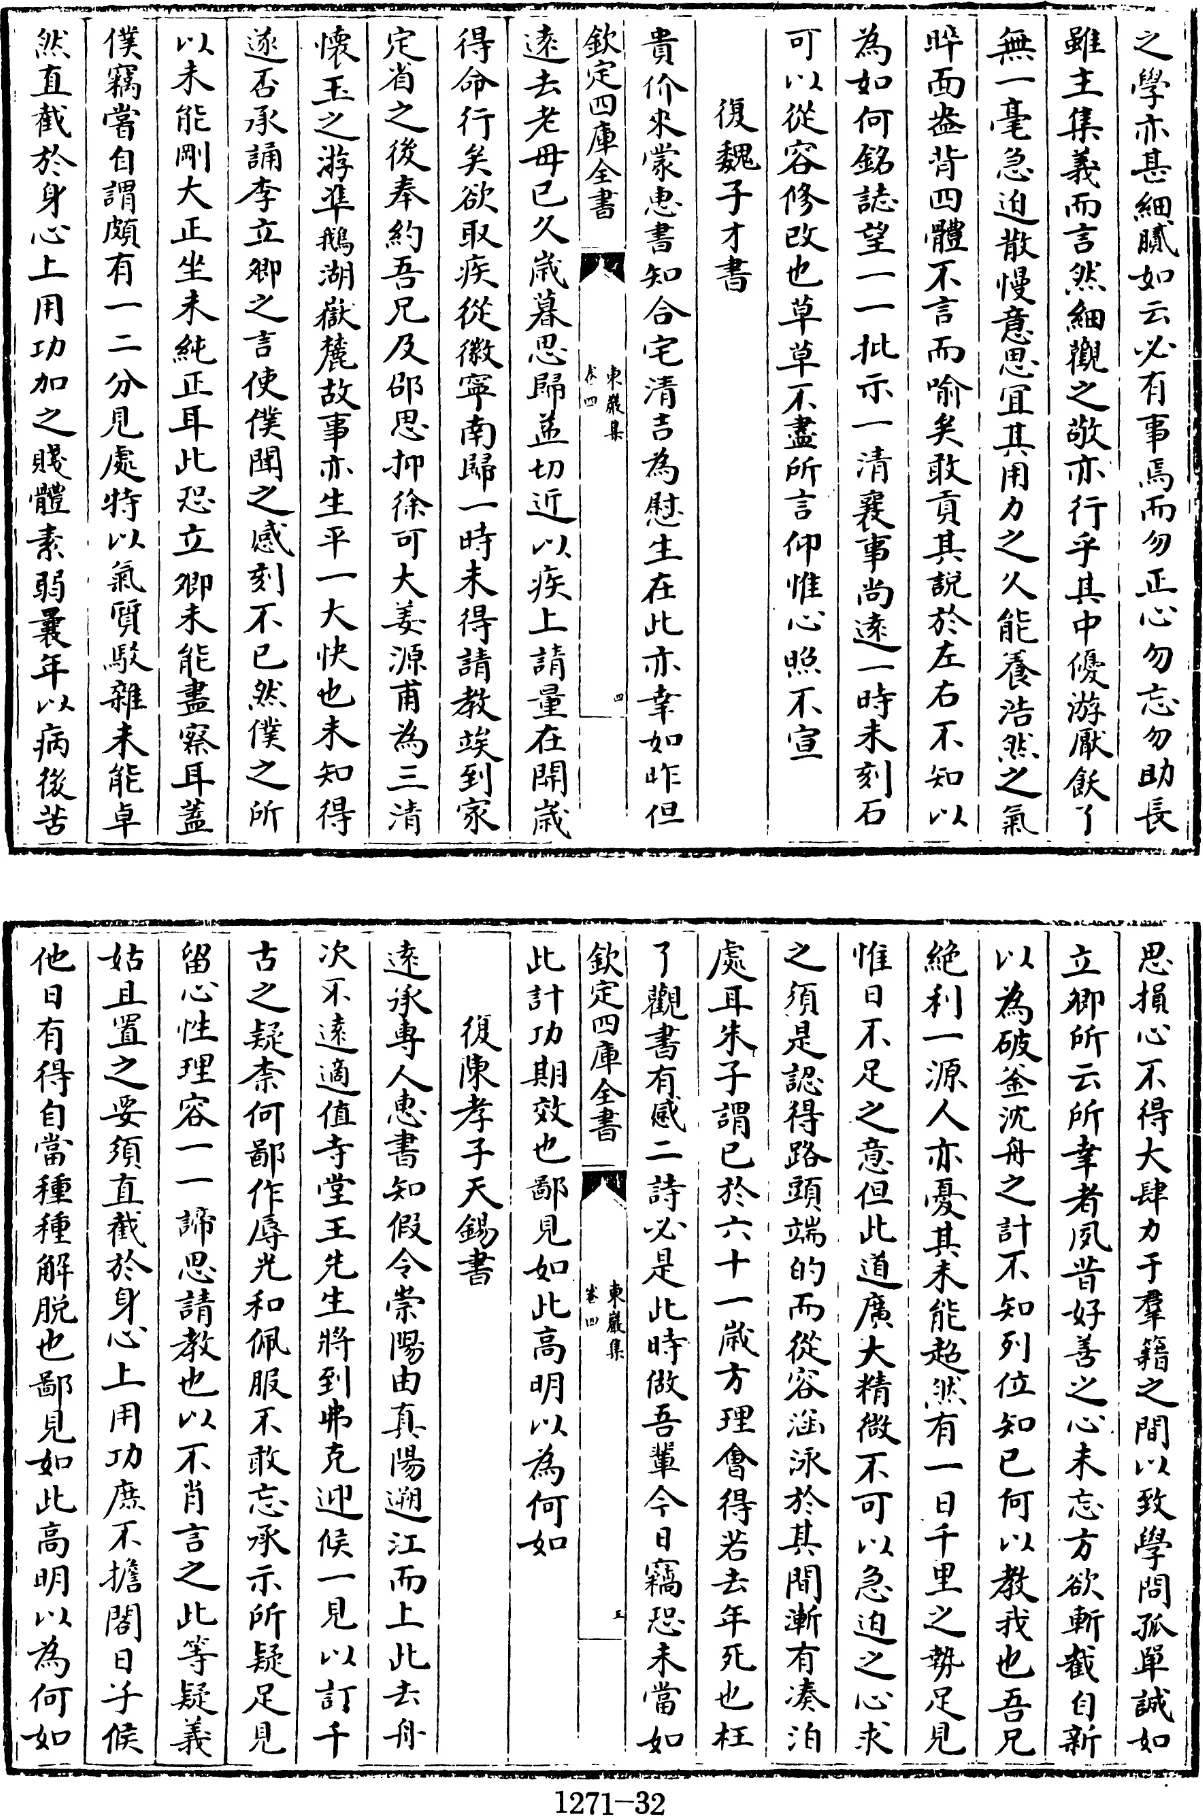 之學亦甚細膩如云必有事焉而勿正心勿忘勿助長
雖主集義而言然細觀之敬亦行乎其中優游厭飫了
無一毫急迫散慢意思宜其用力之久能養浩然之氣
睟面盎背四體不言而喻矣敢貢其說於左右不知以
為如何銘誌望一一批示一清襄事尚遠一時未刻石
可以從容修改也草草不盡所言仰惟心照不宣
復魏子才書
貴价來蒙惠書知合宅清吉為慰生在此亦幸如昨但
欽定四庫全書
東巖集
卷四
四
遠去老母已久歲暮思歸益切近以疾上請量在開歲
得命行矣欲取疾從徽寧南歸一時未得請教竢到家
定省之後奉約吾兄及邵思抑徐可大姜源甫為三清
懷玉之游準鵝湖嶽麓故事亦生平一大快也未知得
遂否承誦李立卿之言使僕聞之感刻不已然僕之所
以未能剛大正坐未純正耳此恐立卿未能盡察耳蓋
僕竊嘗自謂頗有一二分見處特以氣質駁雜未能卓
然直截於身心上用功加之賤體素弱曩年以病後苦
思損心不得大肆力于羣籍之間以致學問孤單誠如
立卿所云所幸者夙昔好善之心未忘方欲斬截自新
以為破釜沈舟之計不知列位知已何以教我也吾兄
絕利一源人亦憂其未能超然有一日千里之勢足見
惟日不足之意但此道廣大精微不可以急迫之心求
之須是認得路頭端的而從容涵泳於其間漸有湊泊
處耳朱子謂已於六十一歲方理會得若去年死也枉
了觀書有感二詩必是此時做吾輩今日竊恐未當如
欽定四庫全書
東巖集
卷四
五
此計功期效也鄙見如此高明以為何如
復陳孝子天錫書
遠承專人惠書知假令崇陽由真陽遡江而上此去舟
次不遠適值寺堂王先生將到弗克迎候一見以訂千
古之疑柰何鄙作辱光和佩服不敢忘承示所疑足見
留心性理容一一諦思請教也以不肖言之此等疑義
姑且置之要須直截於身心上用功庶不擔閣日子候
他日有得自當種種解脫也鄙見如此高明以為何如
1271—32